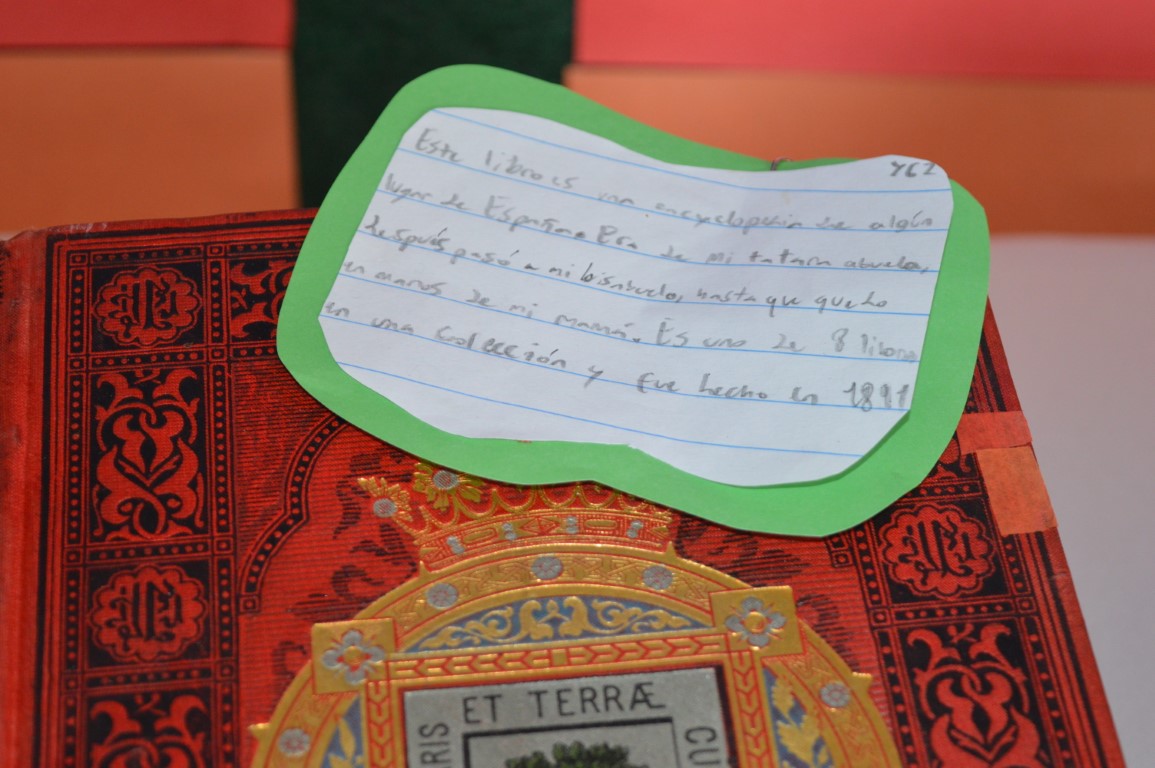 YGZ
Este libro es una encyclopedia de algún
lugar de España. Era de mi tatara abuelo,
después pasó a mi bisabuelo, hasta que quedo
en manos de mi mamá. Es uno de 8 libros
en una colección y fue hecho en 1891
ET TERRÆ
RIS
CU